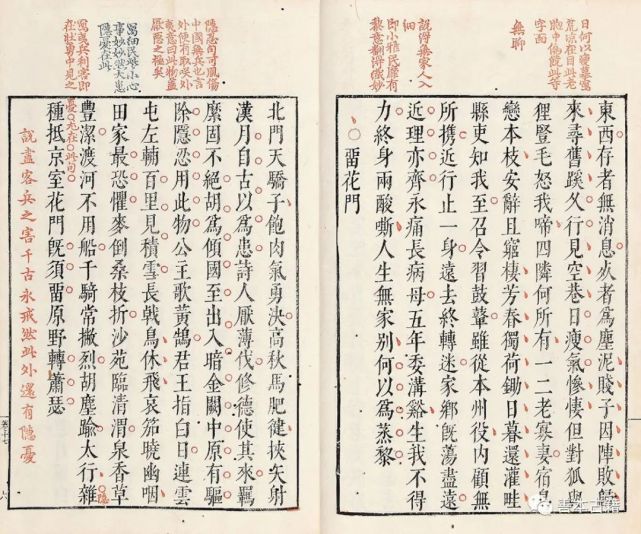 日何以瘦摹寫
荒凉在目此老
胸中偏饒此等
字面
無聊
說得無家人入
細
卽小雅民靡有
黎意翻得妙
東西存者無消息死者爲塵泥賤子因陣敗歸
來尋舊蹊久行見空巷日瘦氣慘悽但對狐與
狸豎毛怒我啼四隣何所有一二老寡妻宿鳥
戀本枝安辭且窮棲方春獨荷鋤日暮還灌畦
縣吏知我至召令習鼓鞞雖從本州役內顧無
所携近行止一身遠去終轉迷家鄉旣蕩盡遠
近理亦齊永痛長病母五年委溝谿生我不得
力終身兩酸嘶人生無家別何以爲蒸黎
留花門
隱忍句可風傷
中國無兵也言
外便有取
夷意曰此物蓋
厭惡之極矣
細民小心
事妙妙然大患
隱憂在此
兵利害卽
在壯勇中見之
北門天驕子飽肉氣勇決高秋馬肥健挾矢射
漢月自古以爲患詩人厭薄伐修德使其來羈
縻固不絕胡爲傾國至出入暗金闕中原有驅
除隱忍用此物公主歌黃鵠君王指白日連雲
屯左輔百里見積雪長戟鳥休飛哀笳曉幽咽
田家最恐懼麥倒桑枝折沙苑臨清渭泉香草
豐潔渡河不用船千騎常撇烈胡塵踰太行雜
種抵京室花門旣須留原野轉蕭瑟
說盡客兵之害千古永戒然此外還有隱憂
善本古籍